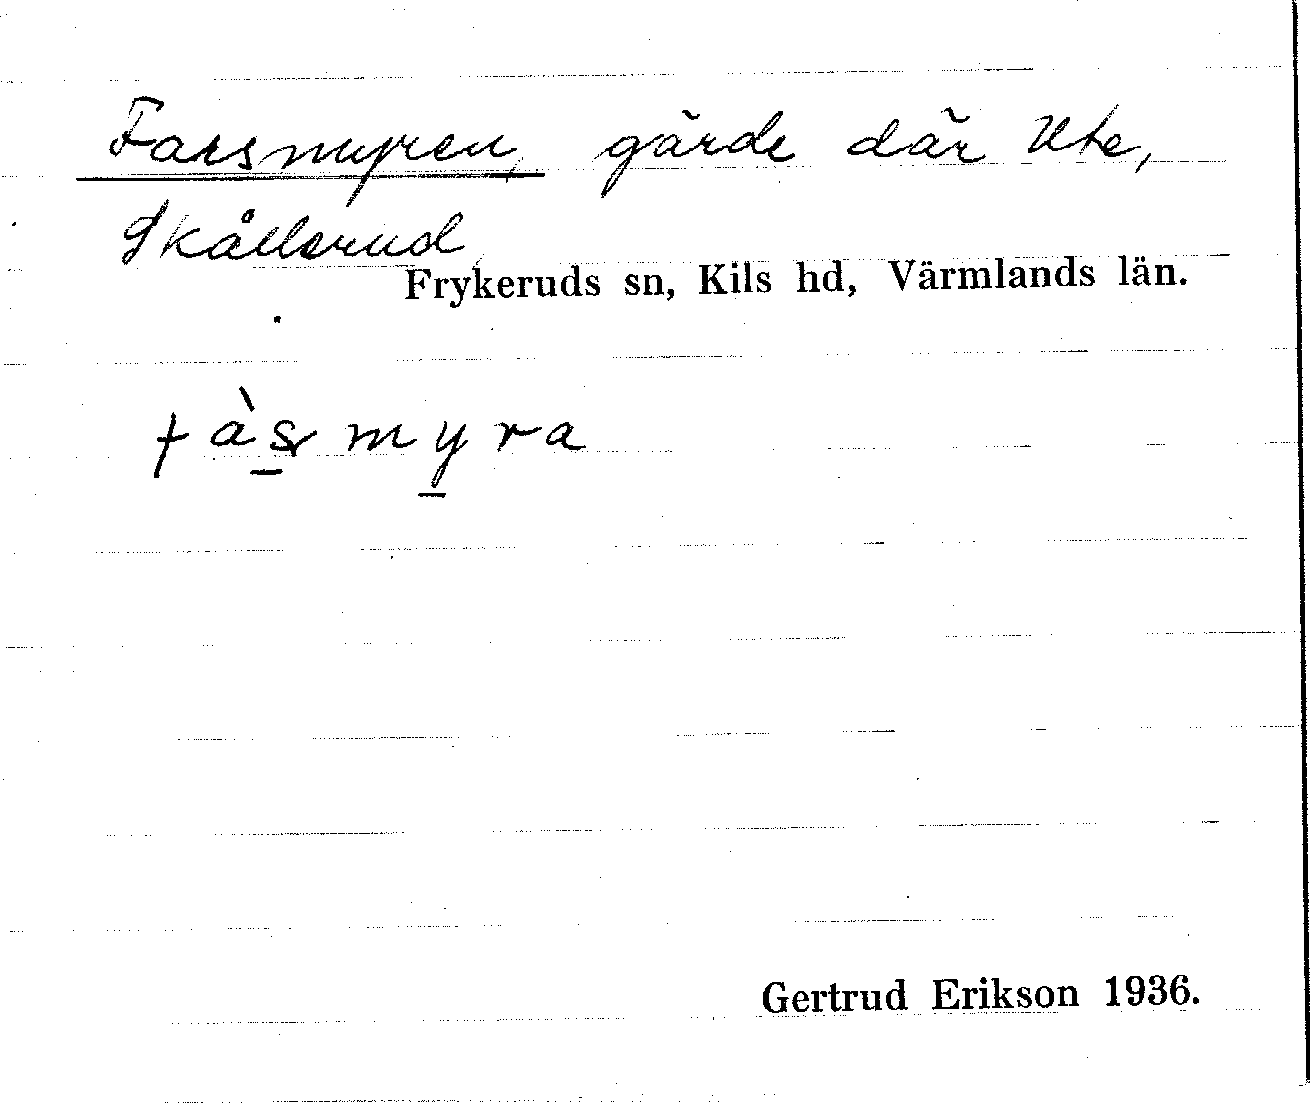 Farsmyren, gärde där Ute,
Skållerud
Frykeruds sn, Kils hd, Värmlands län.
fàs̱my̱ra
Gertrud Erikson 1936.